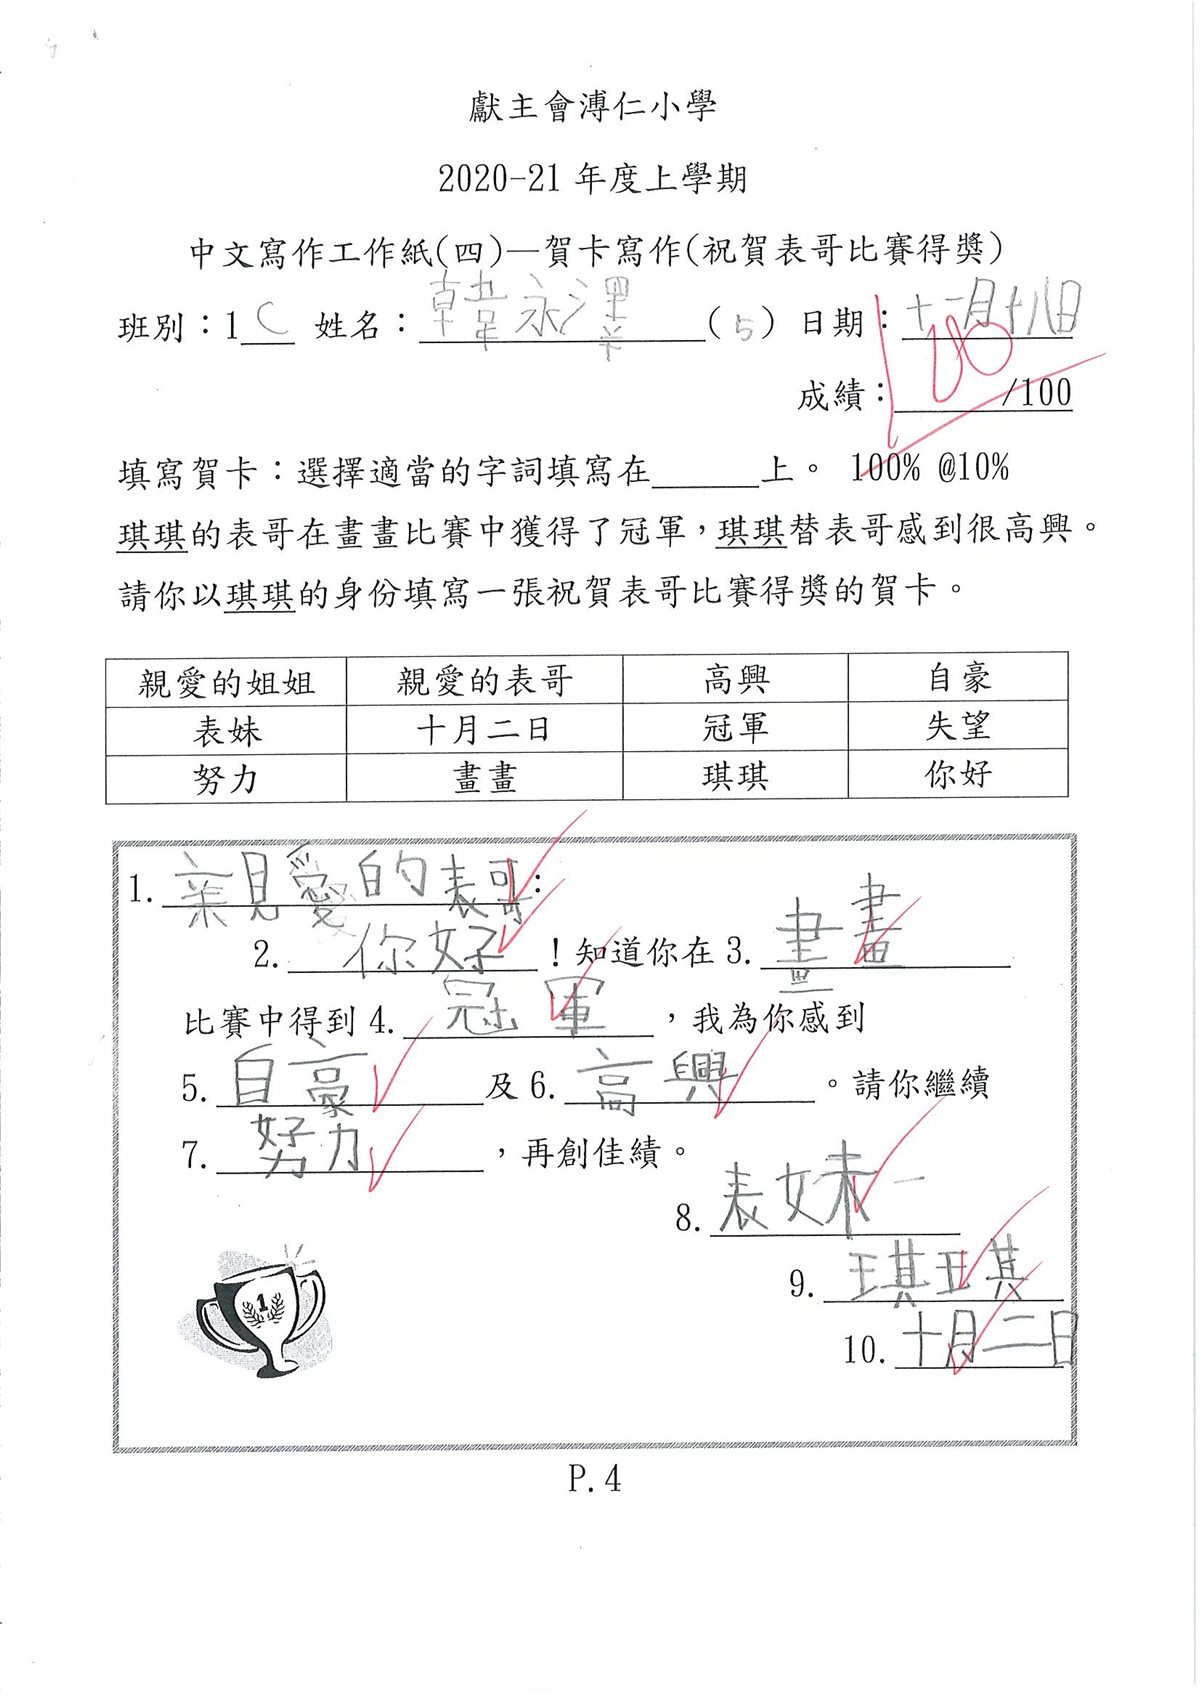 獻主會溥仁小學
2020-21 年度上學期
中文寫作工作紙(四)—賀卡寫作(祝賀表哥比賽得獎)
班別：1 C 姓名：韓永澤 (5) 日期：十一月十八日
成績：100/100
填寫賀卡：選擇適當的字詞填寫在______上。 100% @10%
琪琪的表哥在畫畫比賽中獲得了冠軍，琪琪替表哥感到很高興。
請你以琪琪的身份填寫一張祝賀表哥比賽得獎的賀卡。
親愛的姐姐 親愛的表哥 高興 自豪
表妹 十月二日 冠軍 失望
努力 畫畫 琪琪 你好
1. 親愛的表哥：
2. 你好！知道你在 3. 畫畫
比賽中得到 4. 冠軍，我為你感到
5. 自豪及 6. 高興。請你繼續
7. 努力，再創佳績。
8. 表妹
9. 琪琪
10. 十月二日
1
P.4